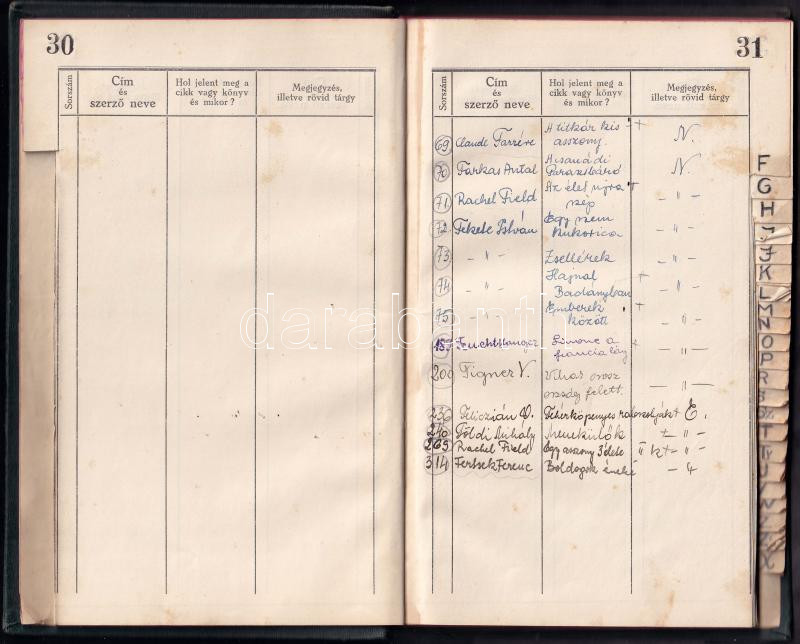 30
Sorszám
Cím
és
szerző neve
Hol jelent meg a
cikk vagy könyv
és mikor?
Megjegyzés,
illetve rövid tárgy
31
Sorszám
Cím
és
szerző neve
Hol jelent meg a
cikk vagy könyv
és mikor?
Megjegyzés,
illetve rövid tárgy
69 Claude Farrére A titkár kis- + N.
asszony.
70 Farkas Antal A csanádi N.
Parazsbáró
71 Rachel Field Az élet ujra + — " —
szép
72 Fekete István Egy szem — " —
kukorica
73 — " — Zsellérek — " —
74 — " — Hajnal + — " —
Badányban
75 — " — Emberek + — " —
között
157 Feuchtwanger Simone a + — " —
francia lány
200 Figner V. Vihar orosz — " —
ország felett.
236 Felicián V. Fehérköpenyes E.
240 Földi Mihály Menekülők + — " —
269 Rachel Field Egy asszony 3 élete
314 Fertsek Ferenc Boldogok éneke — " —
darabanth
F
G
H
I
J
K
L
M
N
O
P
R
S
Sz
T
U
V